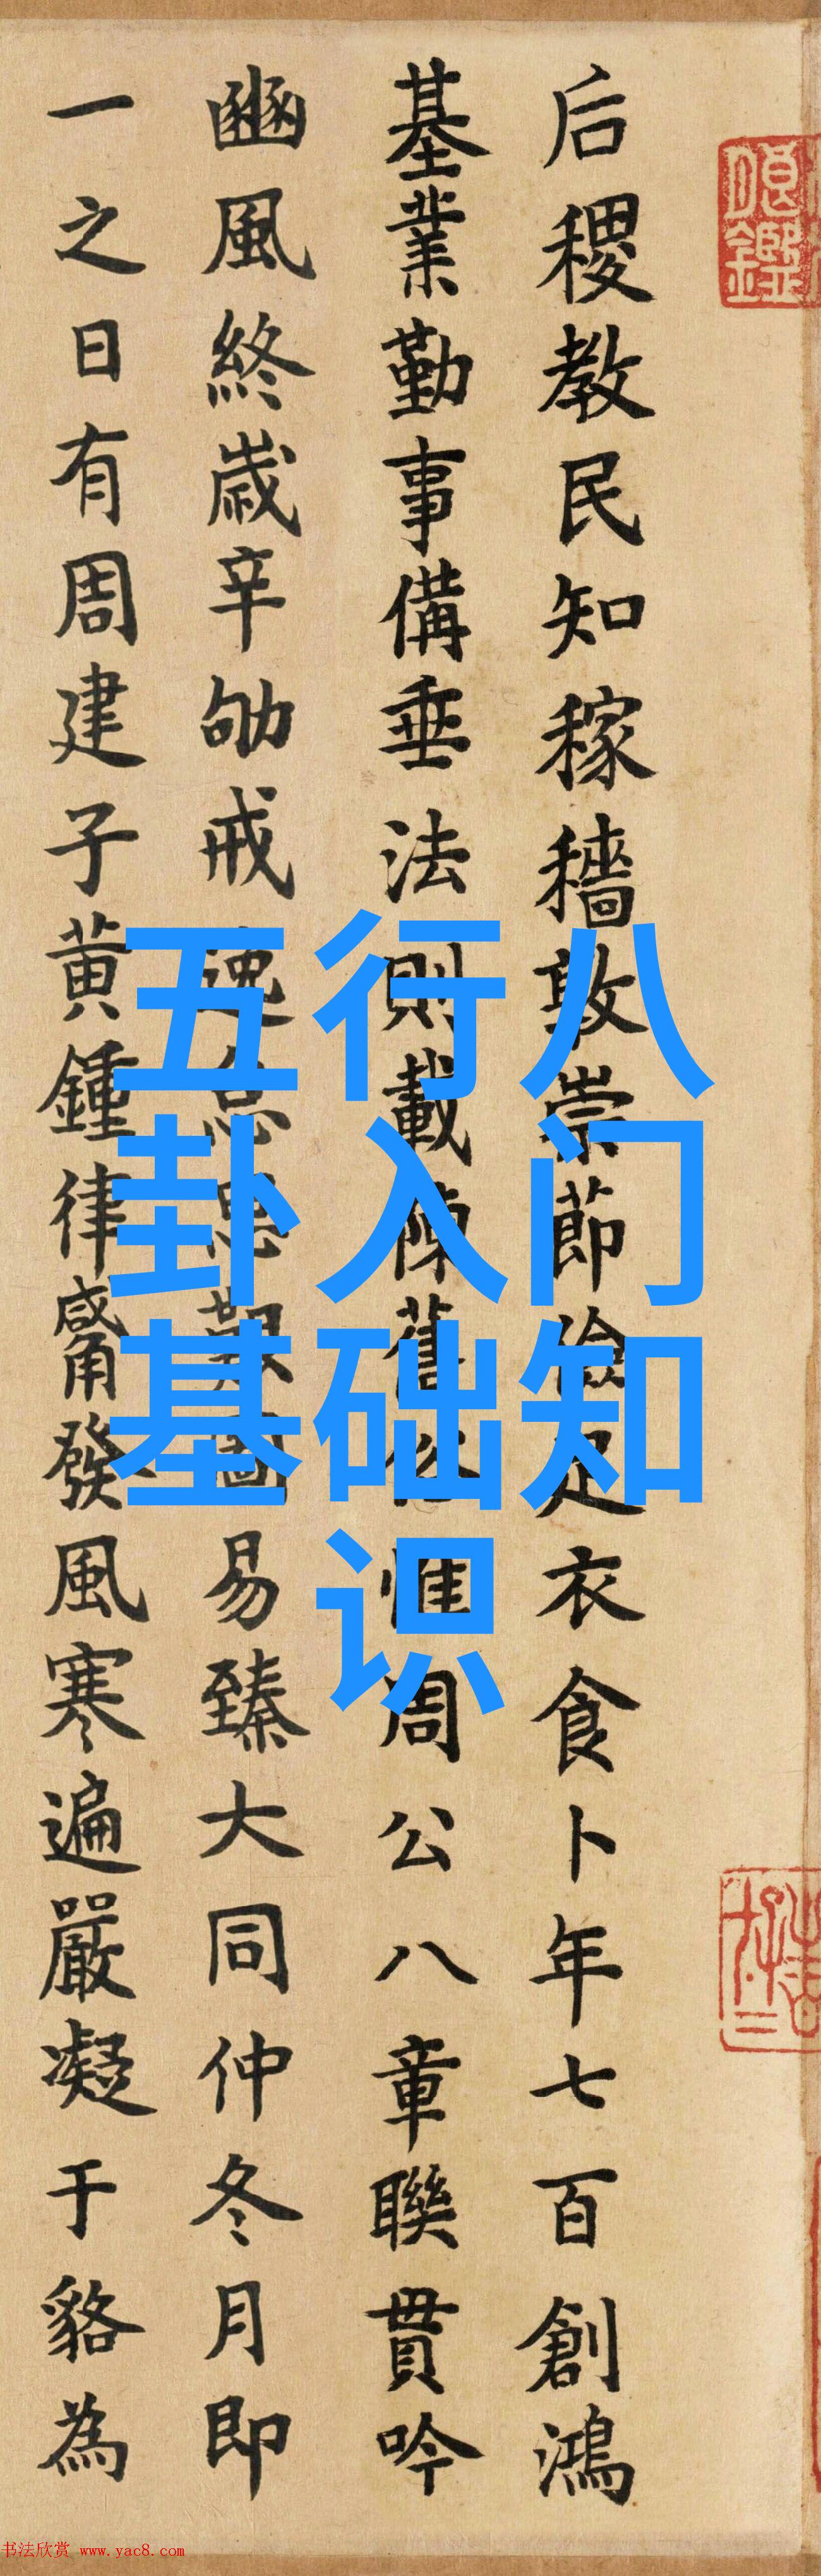 后稷教民知稼穡敦崇節儉足衣食卜年七百創鴻
基業勤事備垂法則載陳舊惟周公八章聯貫吟
豳風終歲辛劬戒逸思艱圖易臻大同仲冬月即
一之日有周建子黃鍾律觱發風寒遍嚴凝于貉為
五行八
卦入门
基础知
识
书法欣赏 www.yac8.com